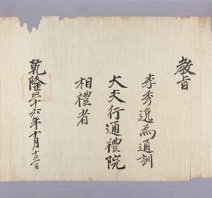 教旨
李秀逸為通訓
大夫行通禮院
相禮者
乾隆三十六年十月十三日